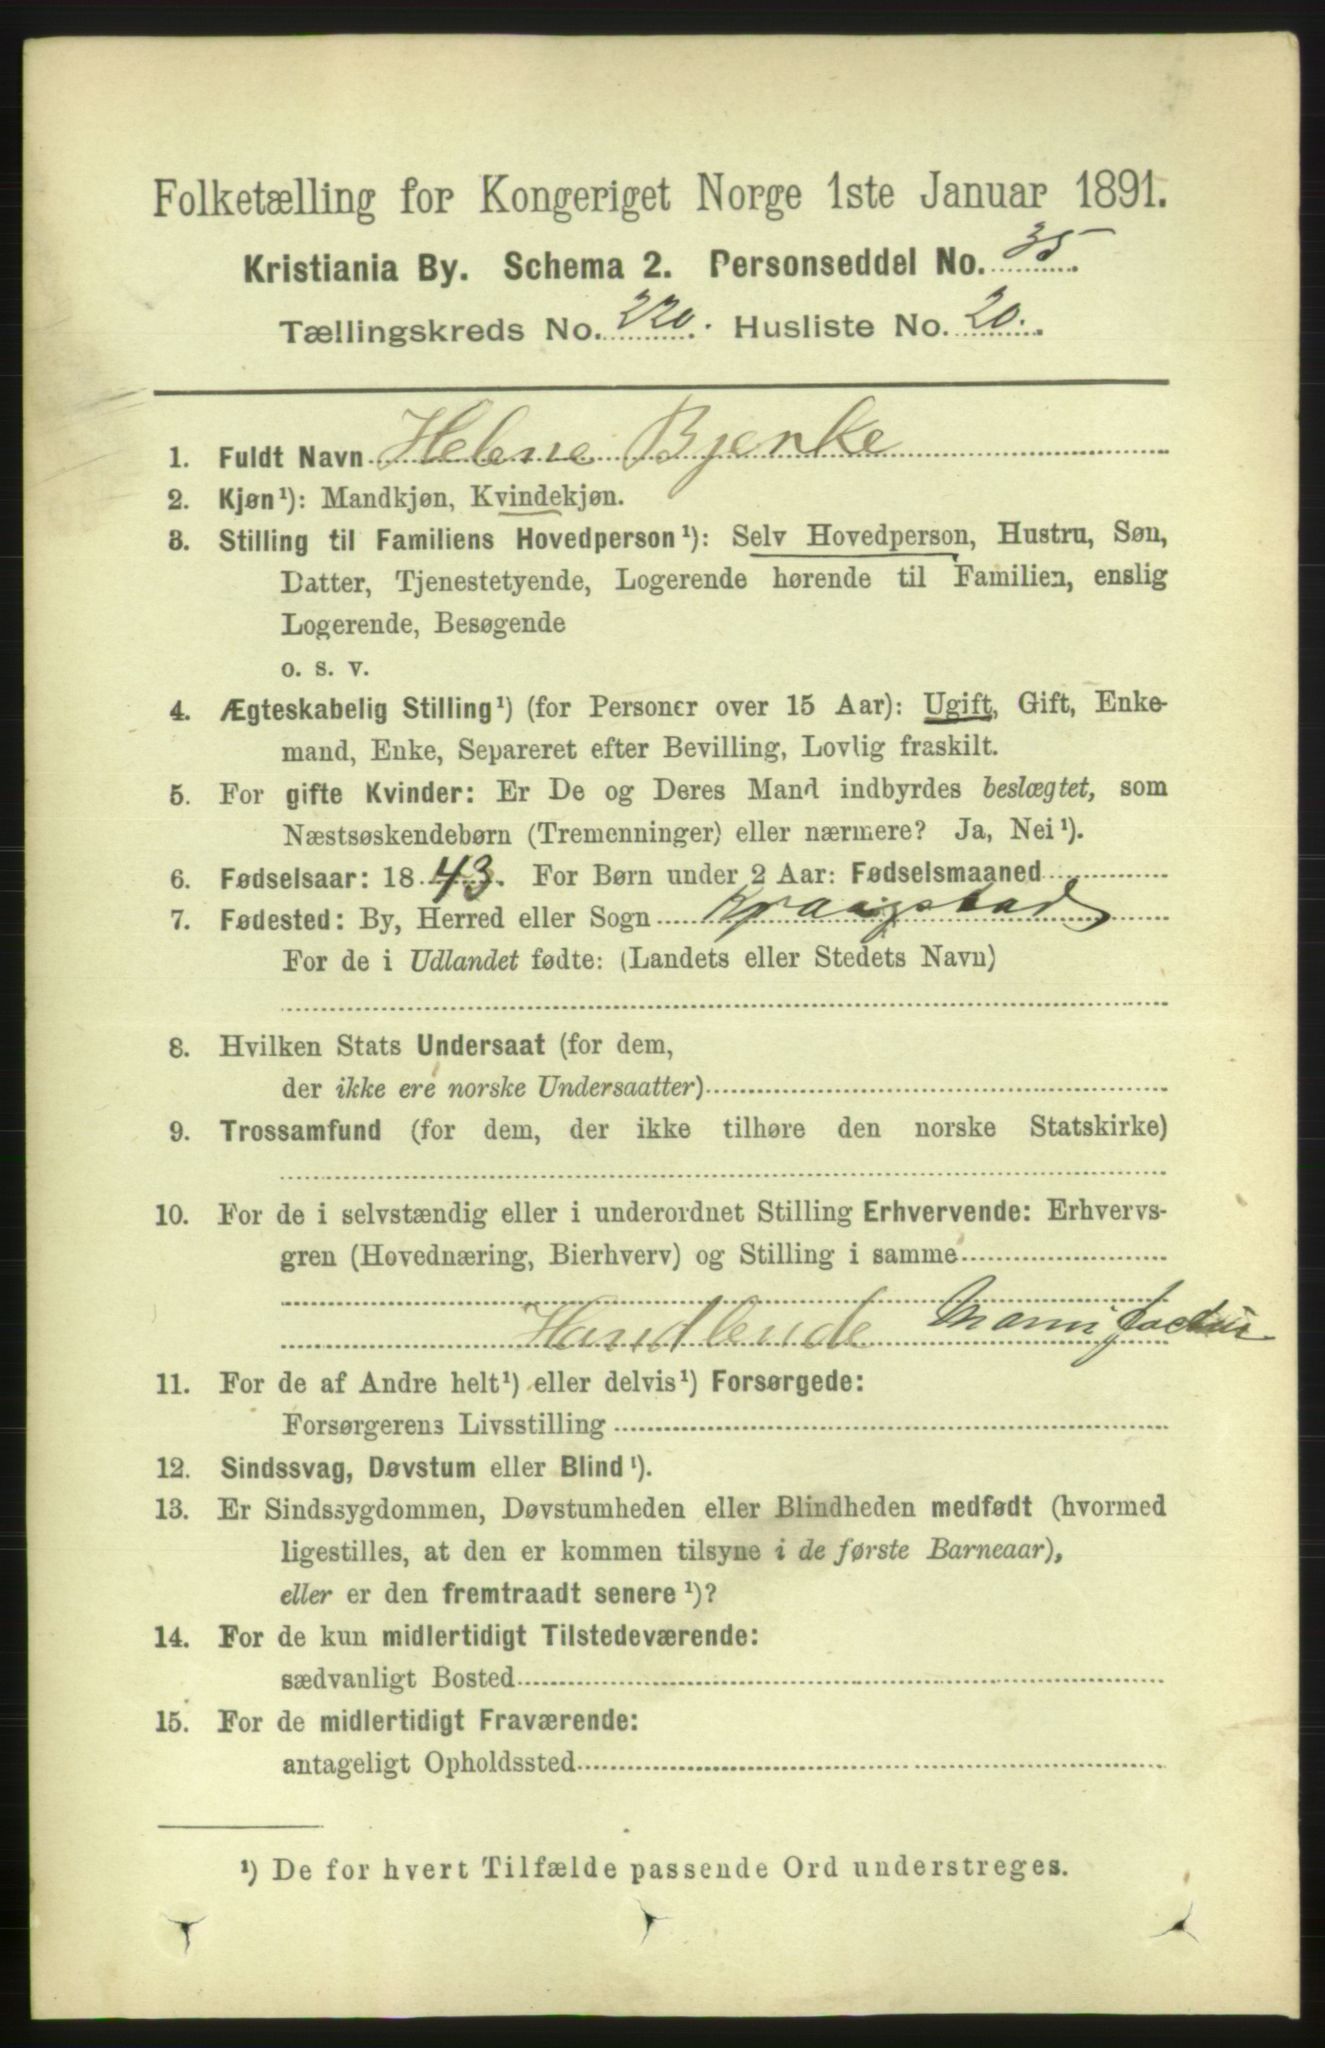 Folketælling for Kongeriget Norge 1ste Januar 1891.
Kristiania By. Schema 2. Personseddel No. 35
Tællingskreds No. 220. Husliste No. 20.
1. Fuldt Navn Helene Bjenke
2. Kjøn¹): Mandkjøn, Kvindekjøn.
3. Stilling til Familiens Hovedperson¹): Selv Hovedperson, Hustru, Søn,
Datter, Tjenestetyende, Logerende hørende til Familien, enslig
Logerende, Besøgende
o. s. v.
4. Ægteskabelig Stilling¹) (for Personer over 15 Aar): Ugift, Gift, Enke-
mand, Enke, Separeret efter Bevilling, Lovlig fraskilt.
5. For gifte Kvinder: Er De og Deres Mand indbyrdes beslægtet, som
Næstsøskendebørn (Tremenninger) eller nærmere? Ja, Nei¹).
6. Fødselsaar: 1843. For Børn under 2 Aar: Fødselsmaaned
7. Fødested: By, Herred eller Sogn Kraagstad
For de i Udlandet fødte: (Landets eller Stedets Navn)
8. Hvilken Stats Undersaat (for dem,
der ikke ere norske Undersaatter)
9. Trossamfund (for dem, der ikke tilhøre den norske Statskirke)
10. For de i selvstændig eller i underordnet Stilling Erhvervende: Erhvervs-
gren (Hovednæring, Bierhverv) og Stilling i samme
Handlende Manufactur
11. For de af Andre helt¹) eller delvis¹) Forsørgede:
Forsørgerens Livsstilling
12. Sindssvag, Døvstum eller Blind¹).
13. Er Sindssygdommen, Døvstumheden eller Blindheden medfødt (hvormed
ligestilles, at den er kommen tilsyne i de første Barneaar),
eller er den fremtraadt senere¹)?
14. For de kun midlertidigt Tilstedeværende:
sædvanligt Bosted
15. For de midlertidigt Fraværende:
antageligt Opholdssted
¹) De for hvert Tilfælde passende Ord understreges.